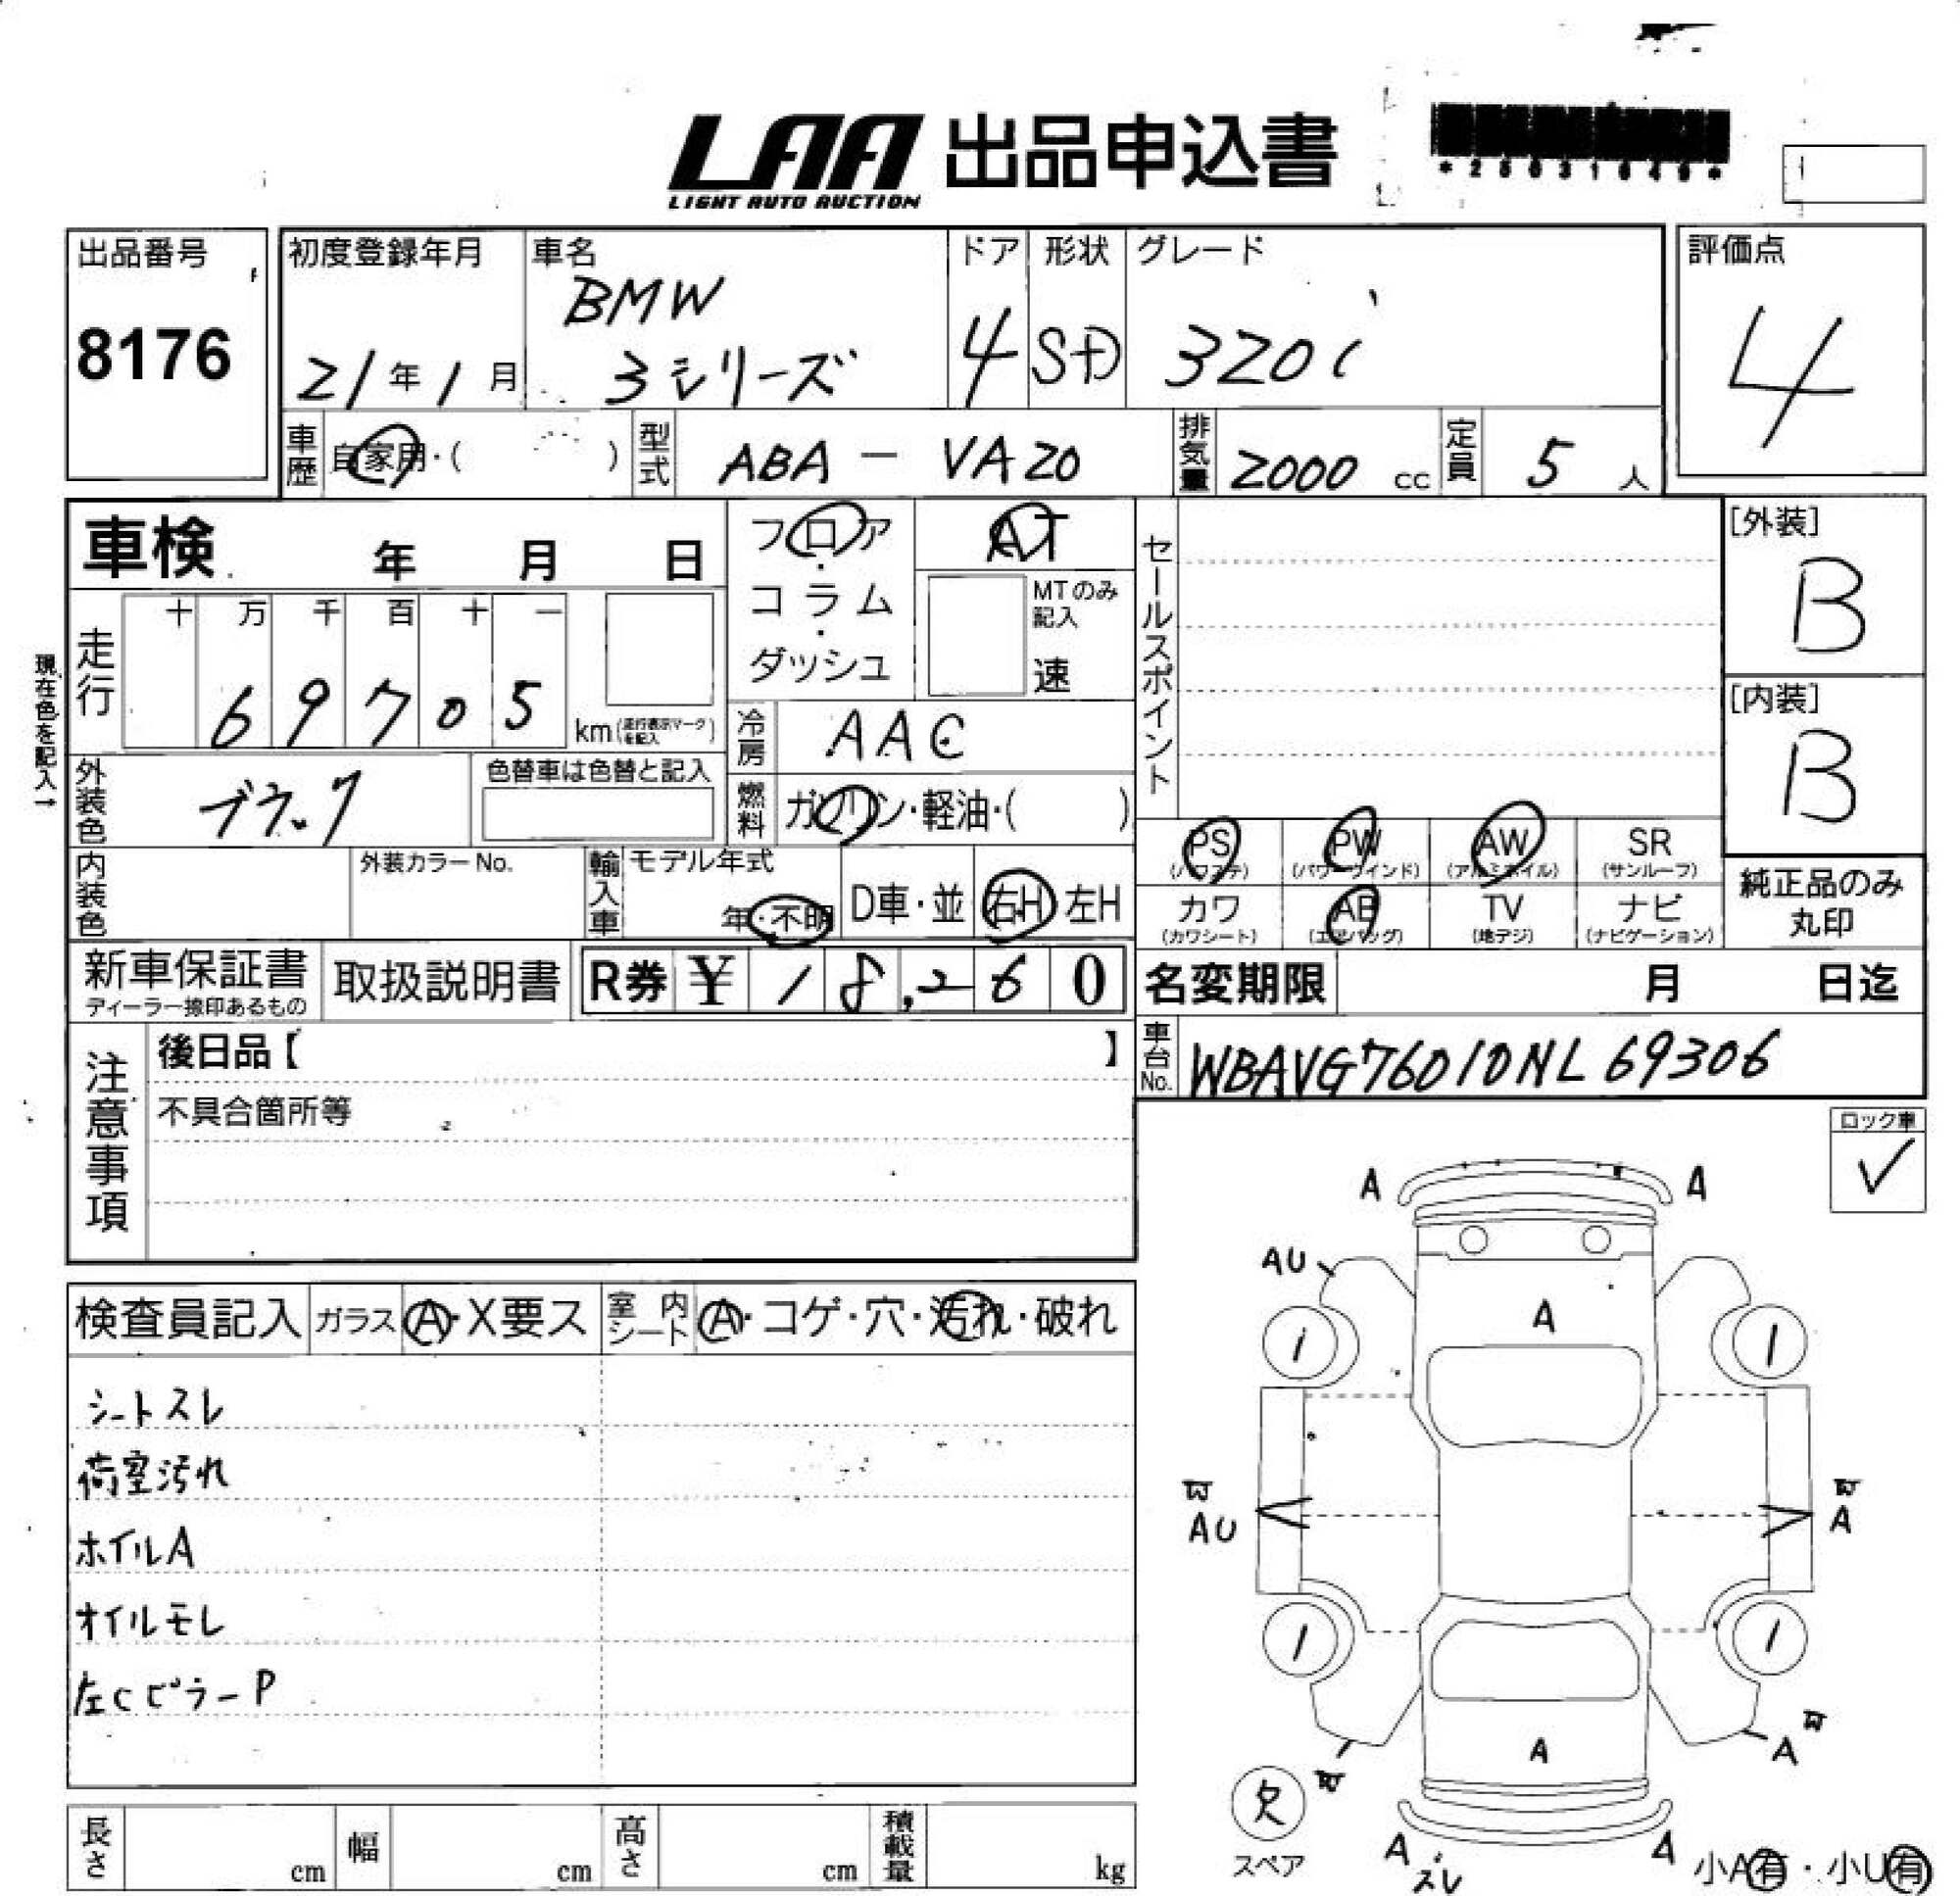 LAA 出品申込書
LIGHT AUTO AUCTION
出品番号
8176
初度登録年月
21年1月
車名
BMW
3シリーズ
ドア
4
形状
SD
グレード
320i
評価点
4
車歴 自家用・( )
型式 ABA - VA20
排気量 2000 cc
定員 5 人
車検 年 月 日
フロア・コラム・ダッシュ
AT
MTのみ記入
速
セールスポイント
[外装]
B
[内装]
B
現在色を記入→
走行
十 万 千 百 十 一
6 9 7 0 5
km (走行表示マークを記入)
冷房 AAC
外装色 ブラック
色替車は色替と記入
燃料 ガソリン・軽油・( )
PS (パワステ)
PW (パワーウィンド)
AW (アルミホイル)
SR (サンルーフ)
カワ (カワシート)
AB (エアバッグ)
TV (地デジ)
ナビ (ナビゲーション)
純正品のみ
丸印
内装色
外装カラーNo.
輸入車
モデル年式
年・不明
D車・並
右H 左H
新車保証書
ディーラー捺印あるもの
取扱説明書
R券 ¥ 18,260
名変期限 月 日迄
車台No. WBAVG76010NL69306
注意事項
後日品【 】
不具合箇所等
ロック車
✓
検査員記入
ガラス A・X要ス
室内シート A・コゲ・穴・汚れ・破れ
シートスレ
荷室汚れ
ホイルA
オイルモレ
左CピラーP
A A
AU
A
AU
A
A
A
A スレ
A
欠
スペア
小A有・小U有
長さ cm
幅 cm
高さ cm
積載量 kg